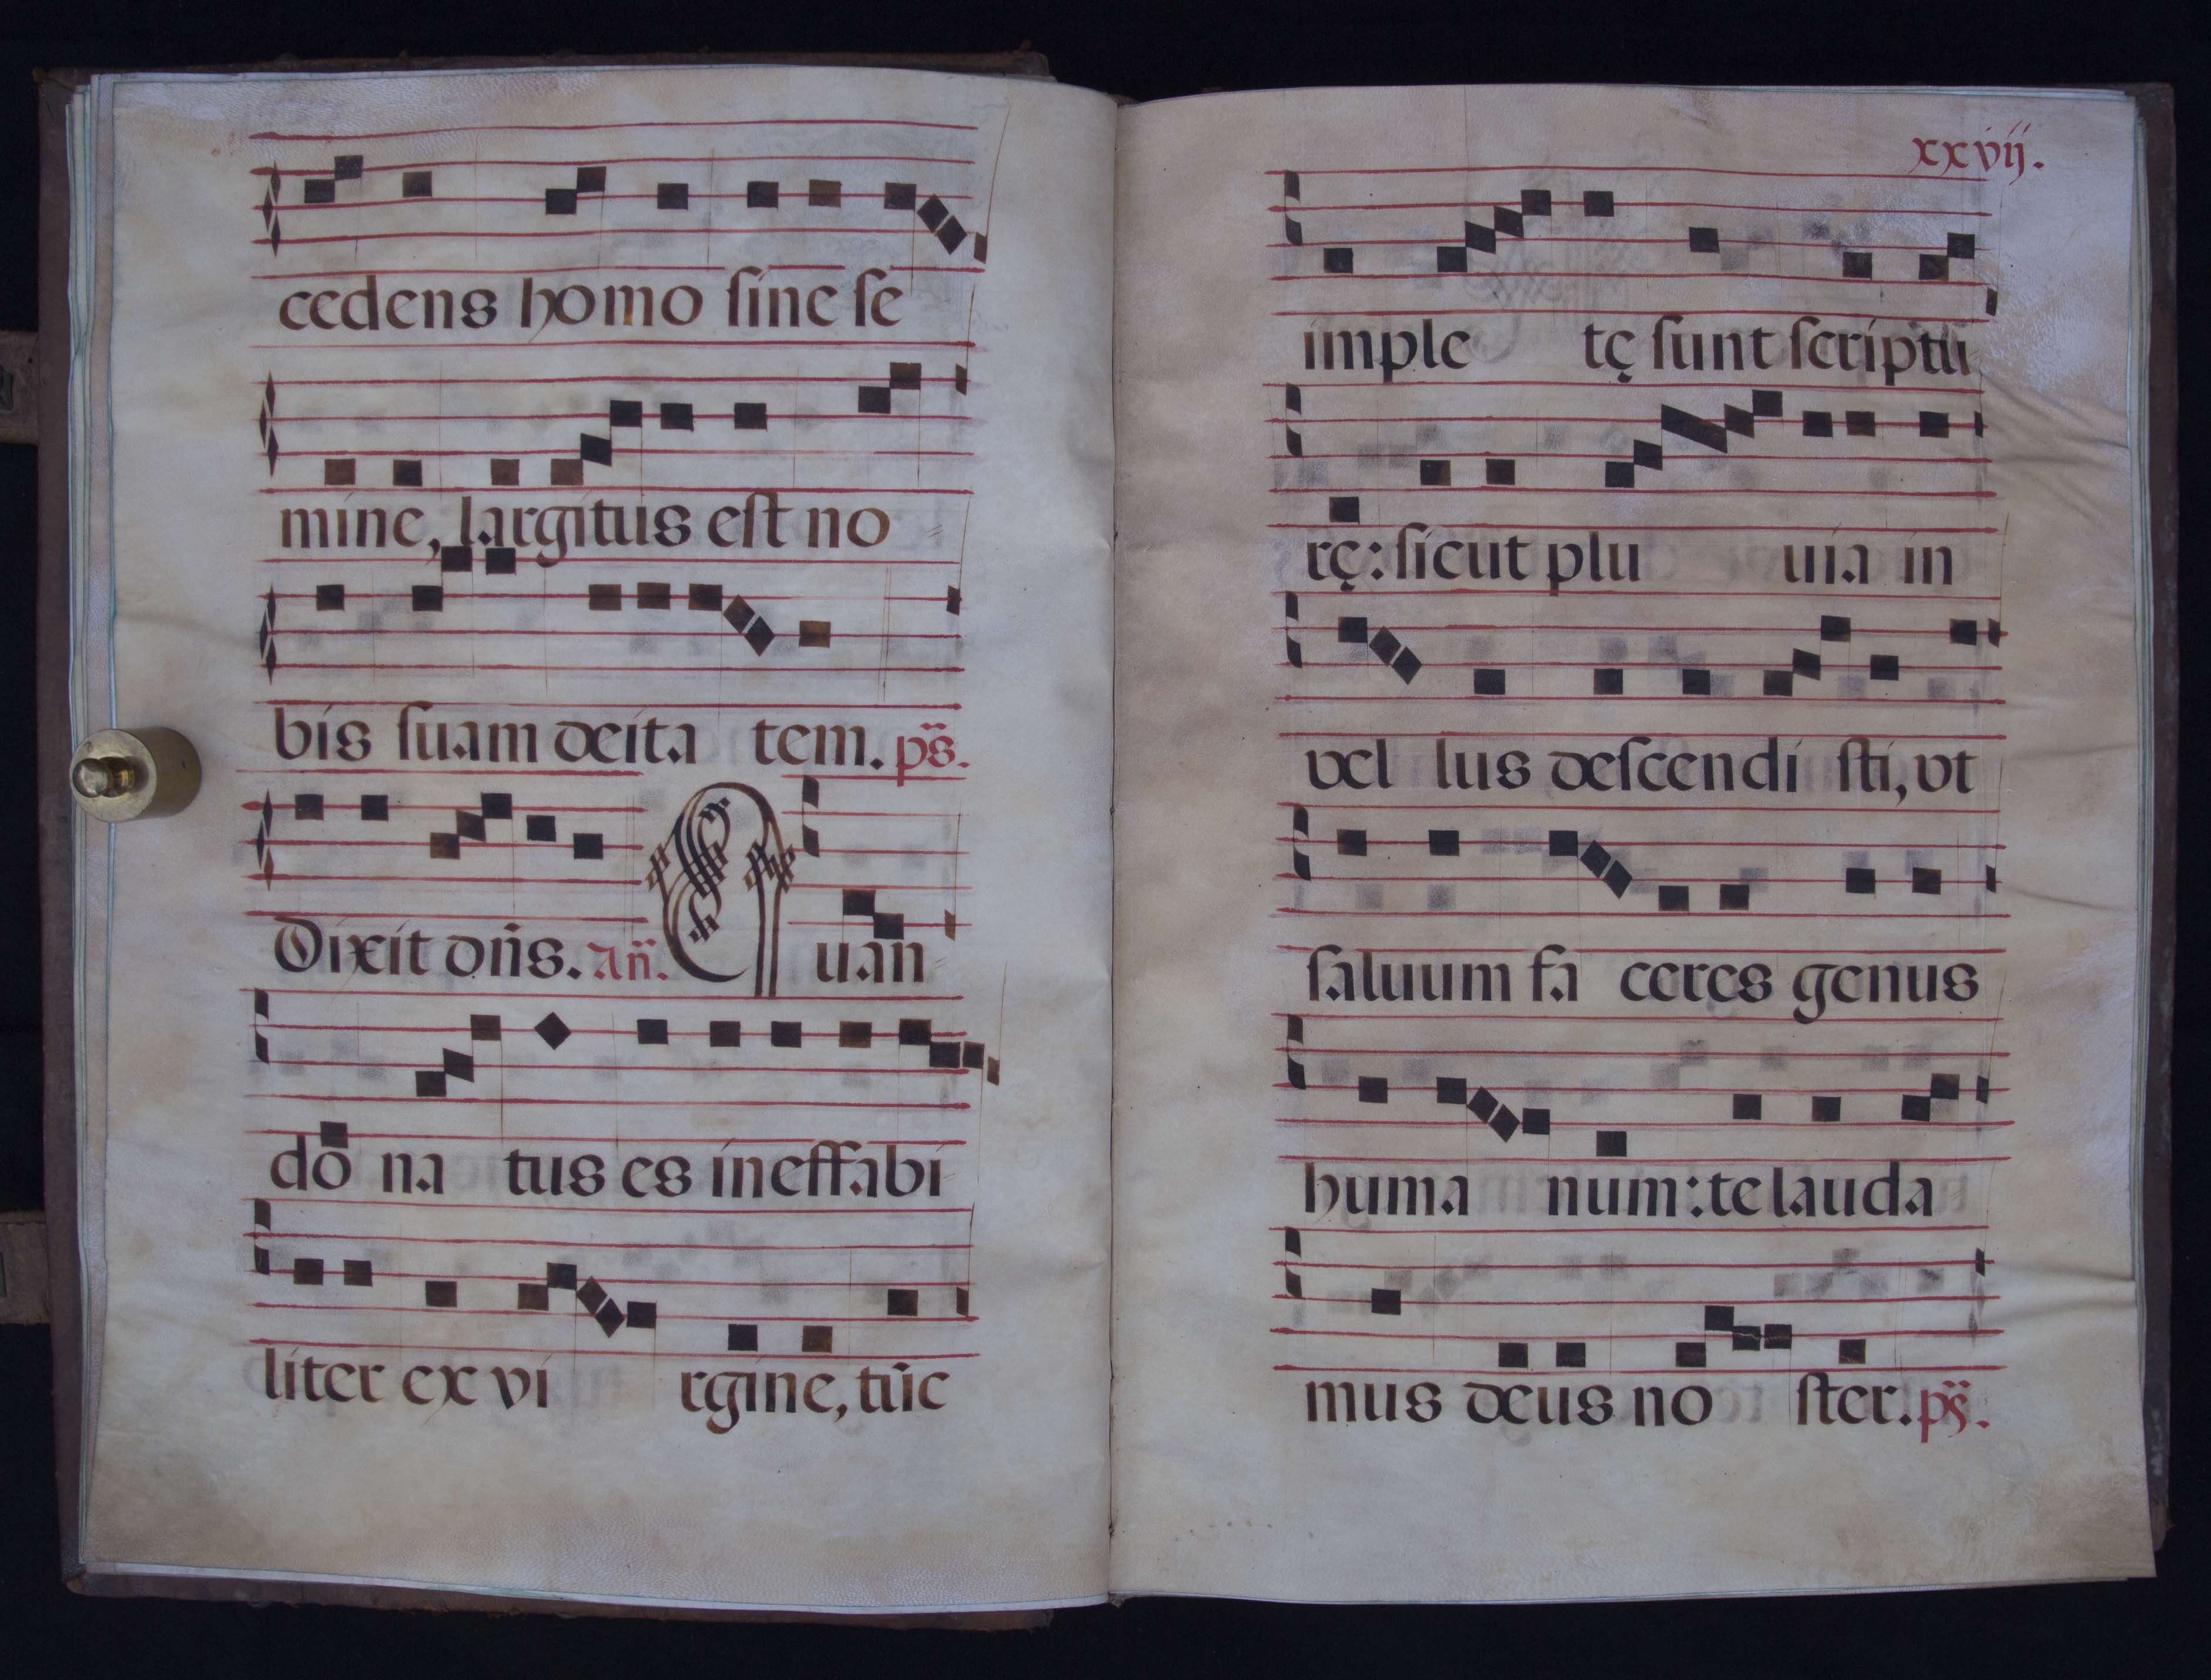 cedens homo ſine ſe
mine, largitus eſt no
bis ſuam deita tem. ps̈.
Dixit dn̄s. an̈. Quan
do na tus es ineffabi
liter ex vi rgine, tūc
xxvij.
imple tę ſunt ſcriptu
rę: ſicut plu uia in
vel lus deſcendi ſti, vt
ſaluum fa ceres genus
huma num: te lauda
mus deus no ſter. ps̈.